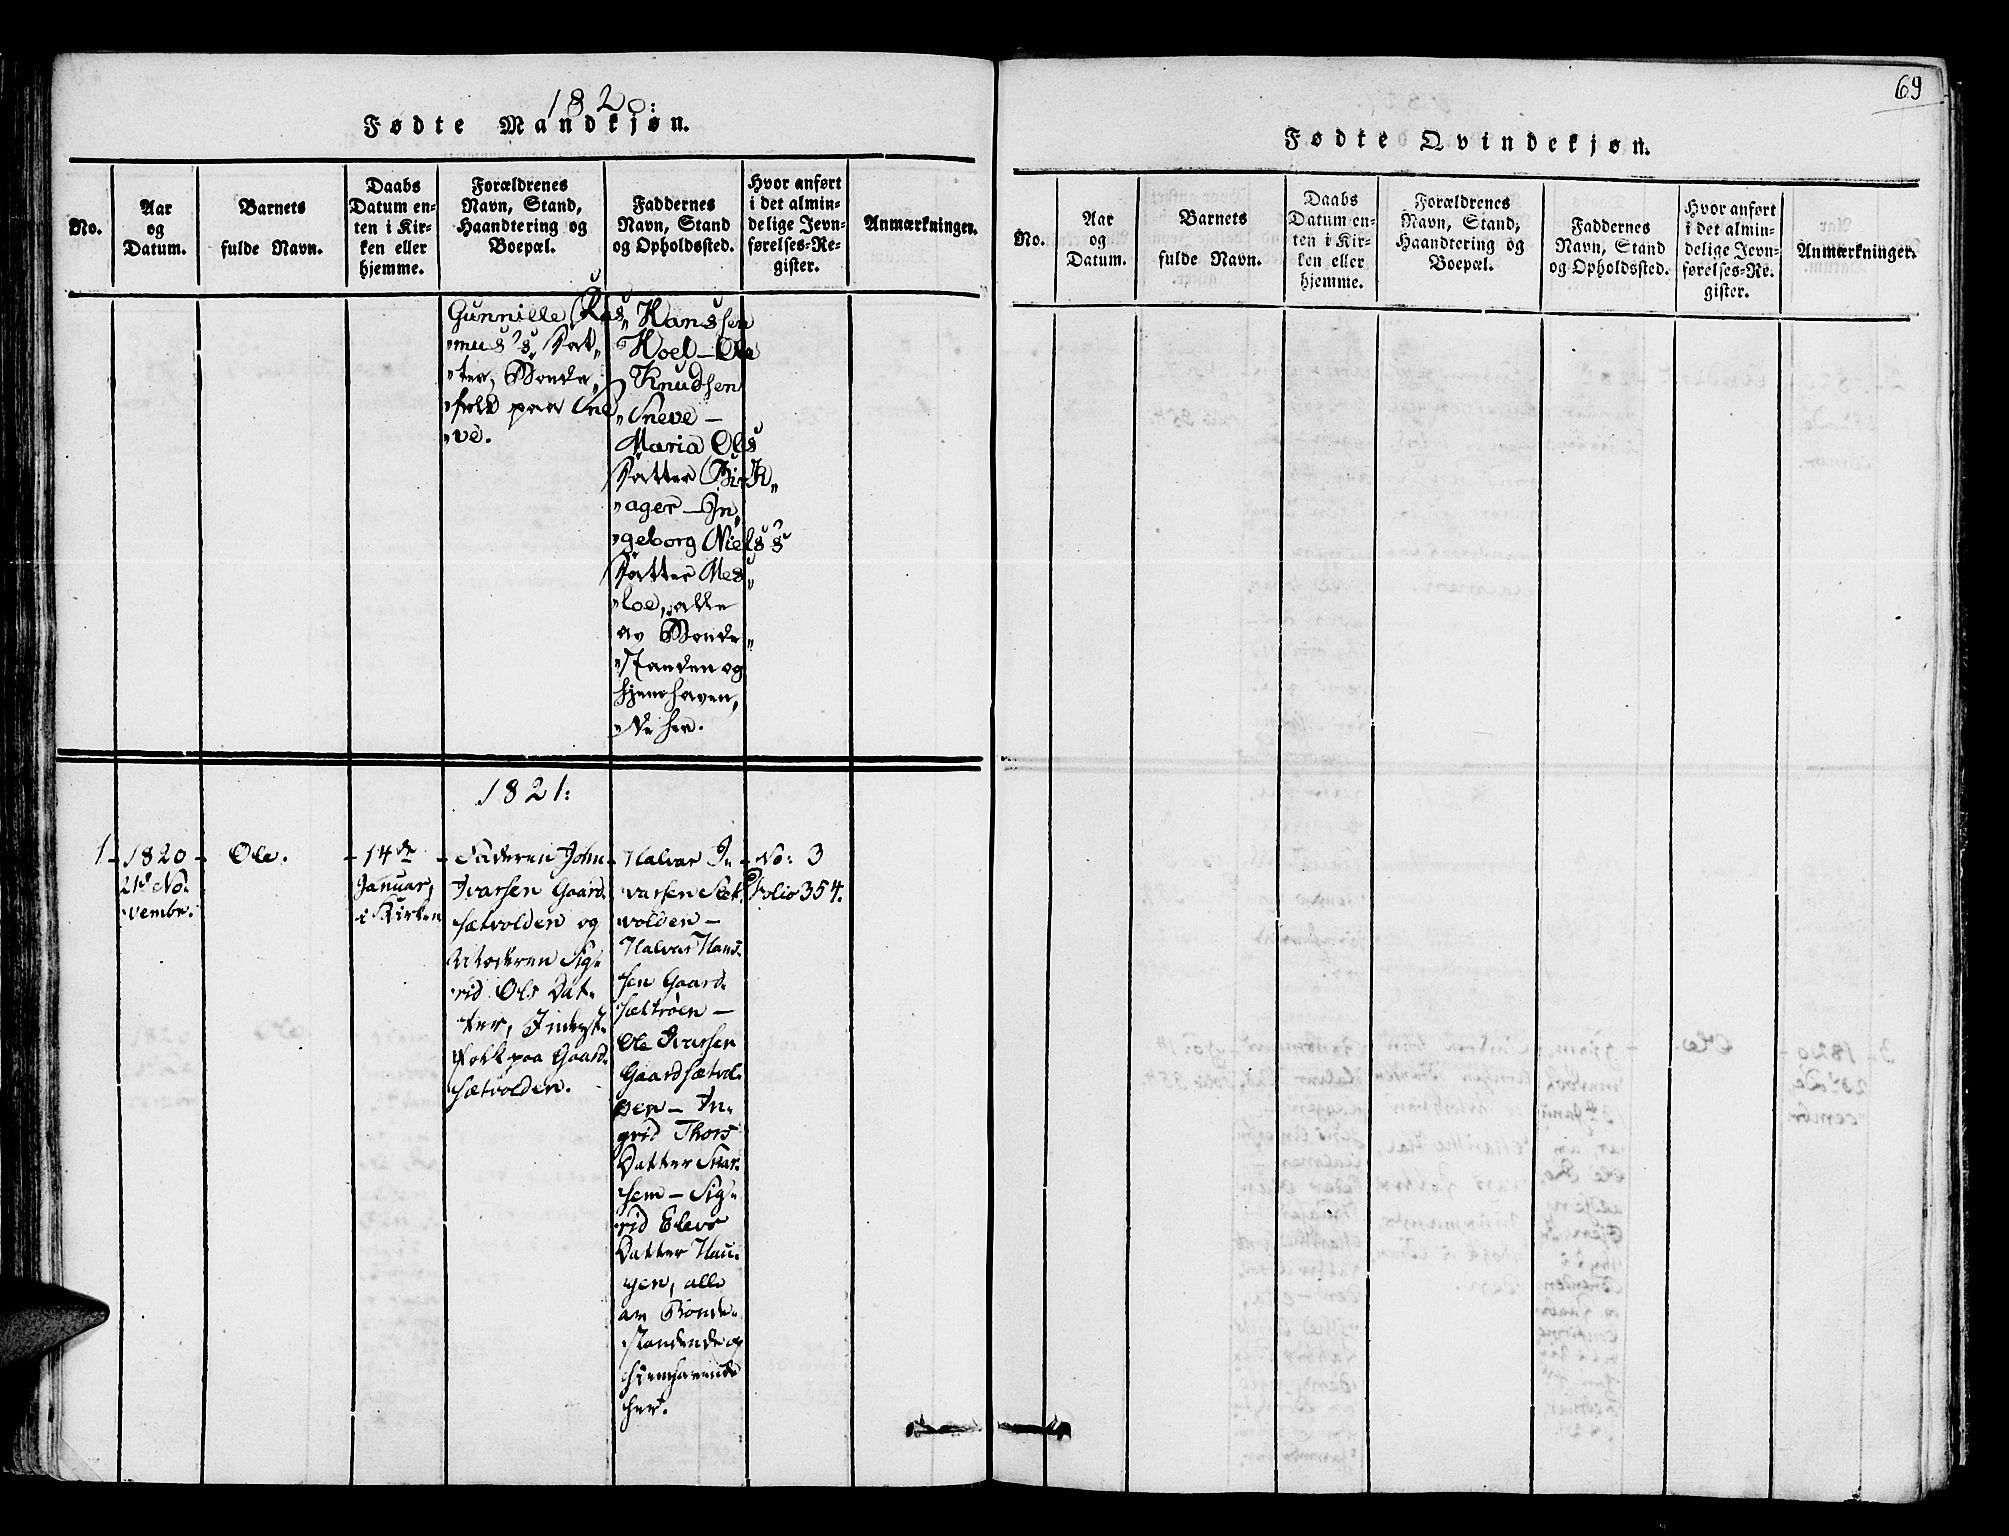 1820:
Fødte Mandkjøn.
No.
Aar
og
Datum.
Barnets
fulde Navn.
Daabs
Datum en-
ten i Kir-
ken eller
hjemme.
Forældrenes
Navn, Stand,
Haandtering og
Boepæl.
Faddernes
Navn, Stand
og Opholdssted.
Hvor anført
i det almin-
delige Jevn-
førelses-Re-
gister.
Anmærkninger.
Gunnille Ras„
„mus's Dat„
„ter, Bonde„
„folk paa Sne
„ve.
„Hanssen
Hoel – Ole
Knudsen
„Sneve –
Maria Ols
Datter Birk„
„ager – In„
„geborg Niels's
Datter Mes„
„loe, alle
av Bonde„
„standen og
hjemhaven„
„de her.
1821:
1 –
1820 –
21d No:
vembr.
Ole.
– 14de
Januar,
i Kirken
– Faderen John
Ivarsen Gaard-
sætvolden og
Moderen Sig-
rid Ols Dat-
ter, Inderst-
folk paa Gaard-
sætvolden.
– Halvor I-
varsen Slet-
volden –
Halvor Hans-
sen Gaard-
sættrøen –
Ole Ivarsen
Gaardsætvol-
den – In-
grid Thors
Datter Snar-
sem – Sig-
rid Elevs
Datter Hau-
gen, alle
av Bonde-
standende og
hiemhavende
her.
– No: 3
Folio 354.
69
Fødte Qvindekjøn.
No.
Aar
og
Datum.
Barnets
fulde Navn.
Daabs
Datum en-
ten i Kir-
ken eller
hjemme.
Forældrenes
Navn, Stand,
Haandtering og
Boepæl.
Faddernes
Navn, Stand
og Opholdssted.
Hvor anført
i det almin-
delige Jevn-
førelses-Re-
gister.
Anmærkninger.